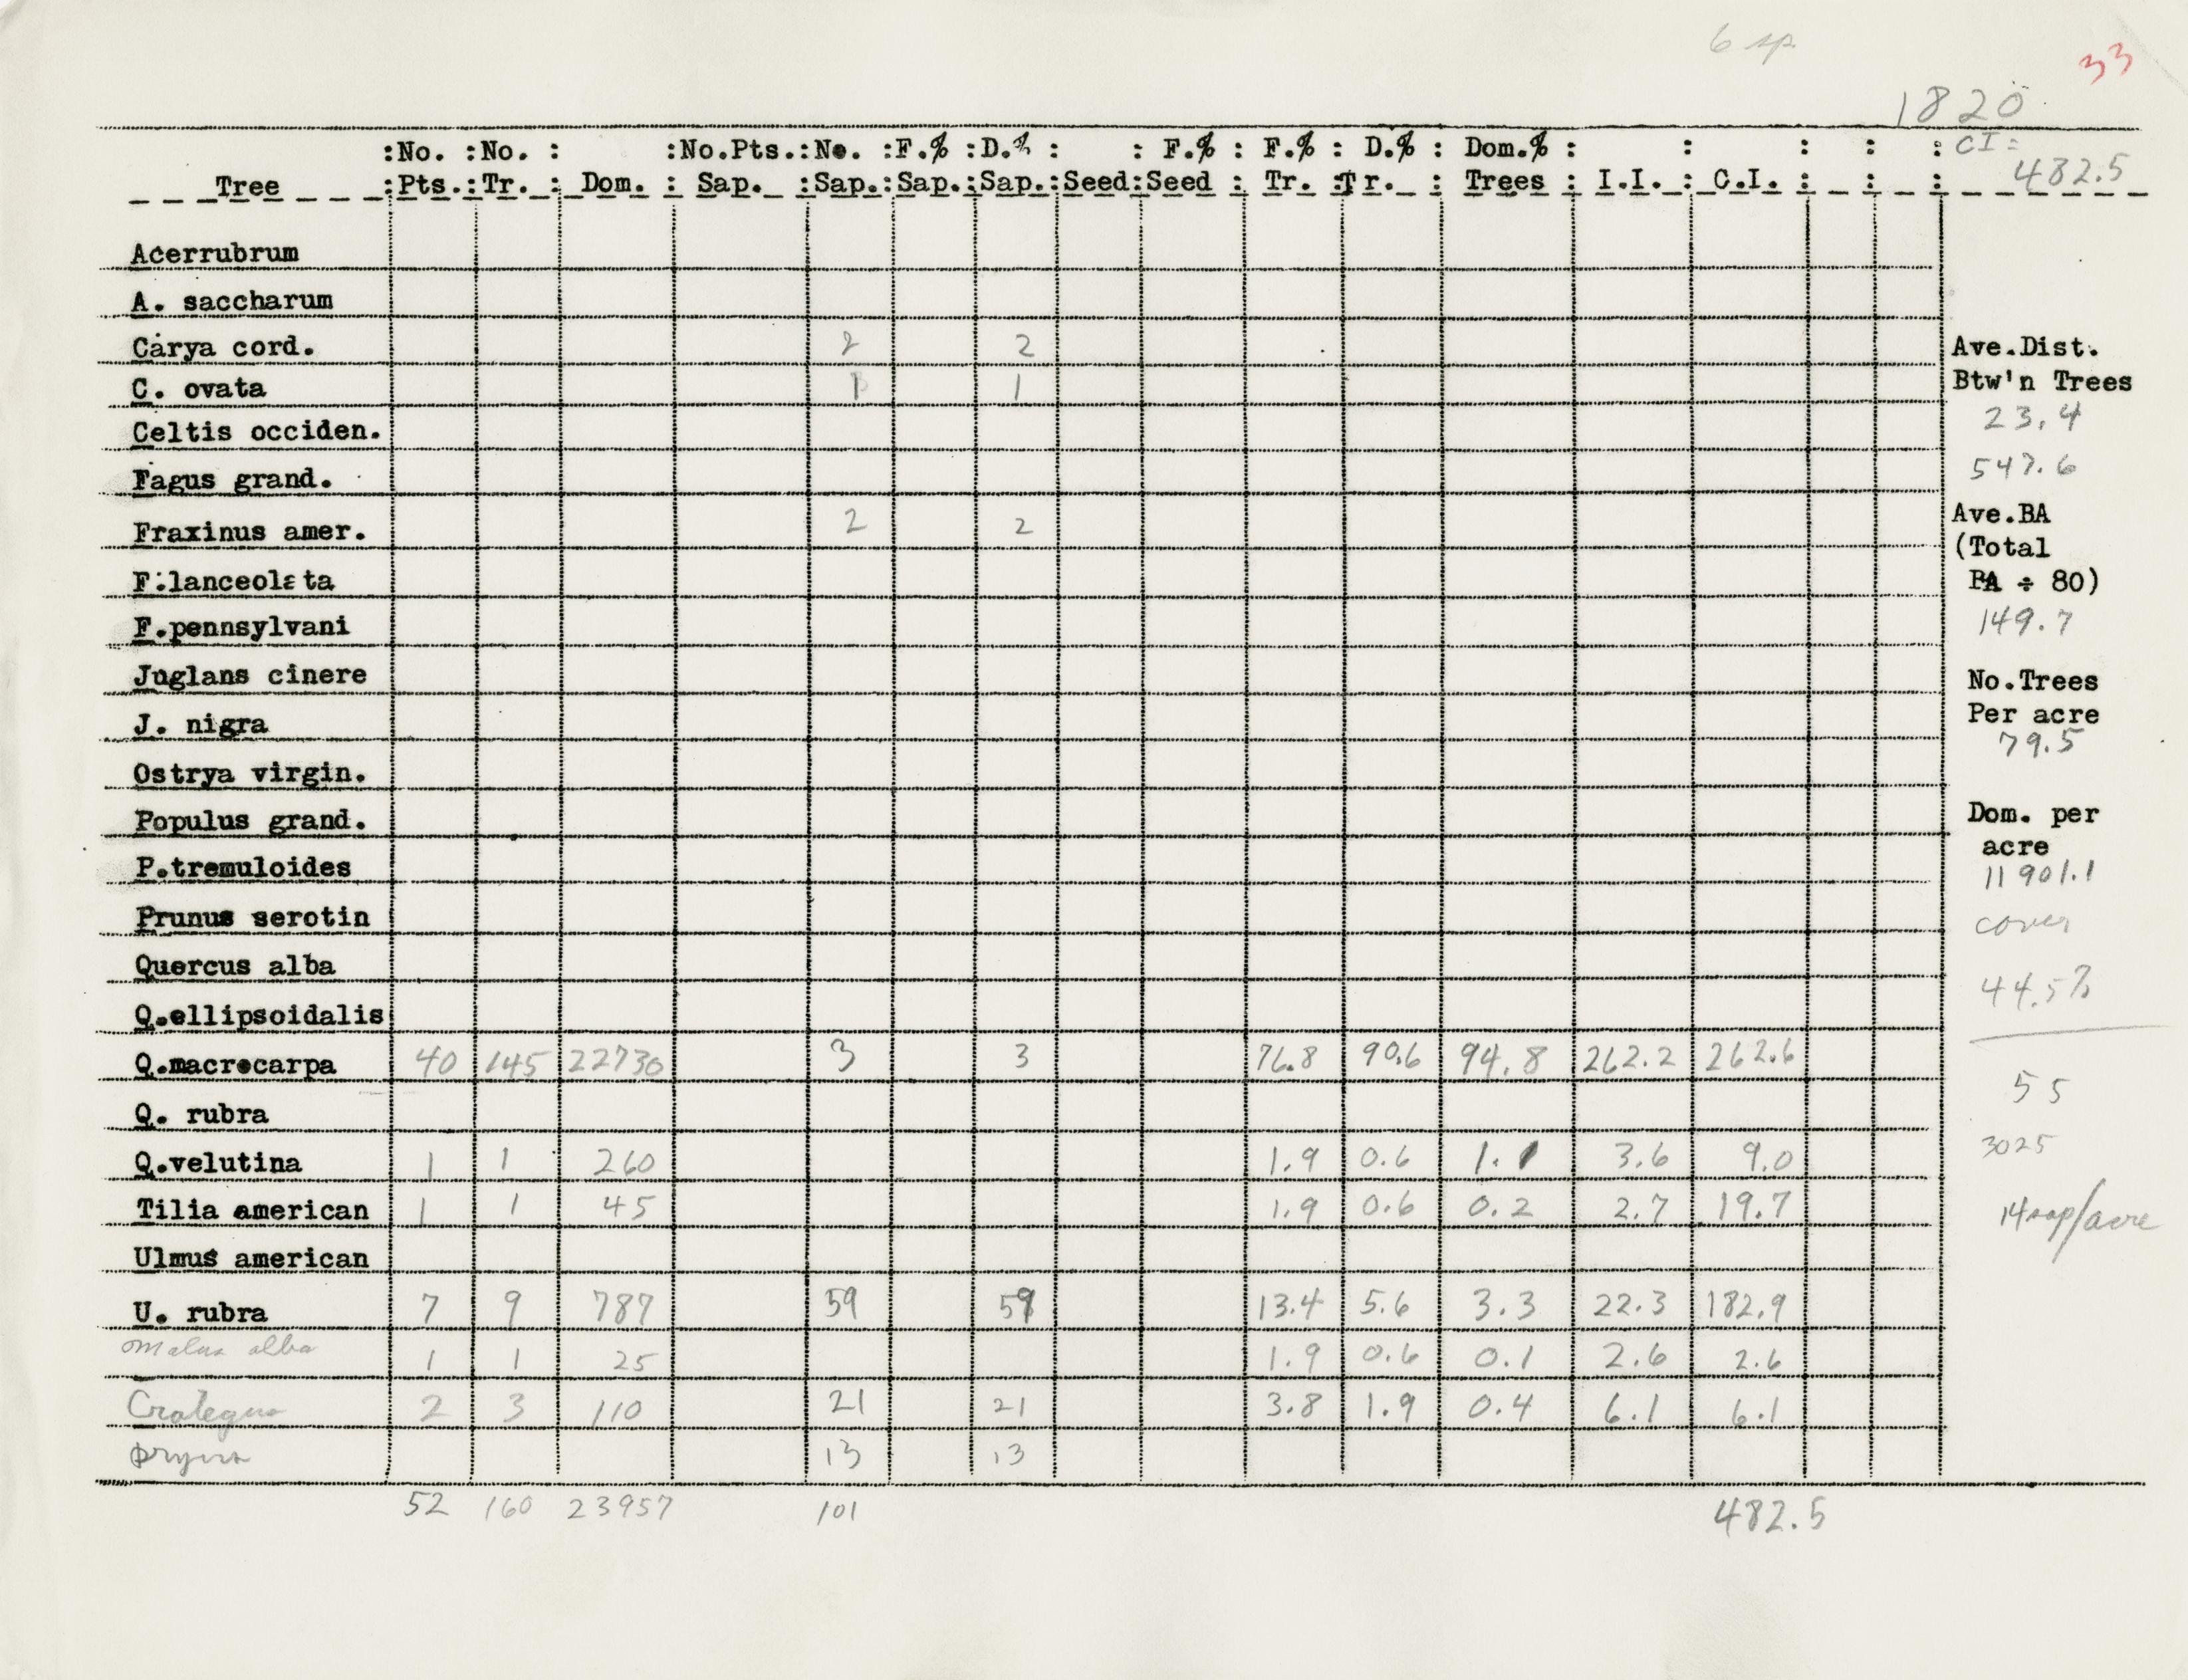 6 sp.
33
1820
:No. :No. : :No.Pts.:No. :F.% :D.% : : F.% : F.% : D.% : Dom.% : : : : : CI =
Tree :Pts.:Tr. : Dom. : Sap. :Sap.:Sap.:Sap.:Seed:Seed : Tr. :Tr. : Trees : I.I. : C.I. : : : 482.5
Acerrubrum
A. saccharum
Carya cord. 2 2
Ave.Dist.
C. ovata 1 1
Btw'n Trees
23.4
Celtis occiden.
547.6
Fagus grand.
Ave.BA
Fraxinus amer. 2 2
(Total
F.lanceolata
BA ÷ 80)
F.pennsylvani
149.7
Juglans cinere
No.Trees
J. nigra
Per acre
79.5
Ostrya virgin.
Populus grand.
Dom. per
acre
P.tremuloides
11901.1
Prunus serotin
cover
Quercus alba
44.5%
Q.ellipsoidalis
Q.macrocarpa 40 145 22730 3 3 76.8 90.6 94.8 262.2 262.6
55
Q. rubra
3025
Q.velutina 1 1 260 1.9 0.6 1.1 3.6 9.0
Tilia american 1 1 45 1.9 0.6 0.2 2.7 19.7
14 sap/acre
Ulmus american
U. rubra 7 9 787 59 59 13.4 5.6 3.3 22.3 182.9
malus alba 1 1 25 1.9 0.6 0.1 2.6 2.6
Crategus 2 3 110 21 21 3.8 1.9 0.4 6.1 6.1
13 13
52 160 23957 101 482.5